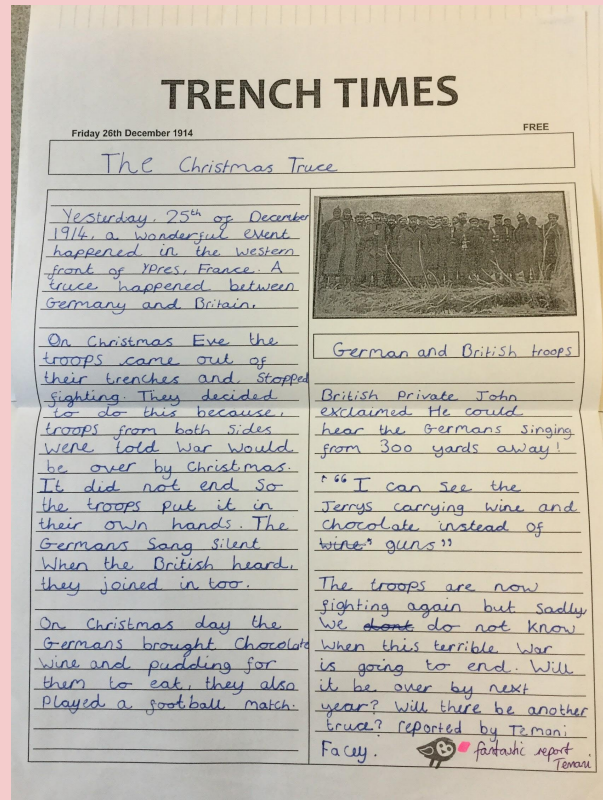 TRENCH TIMES
Friday 26th December 1914
FREE
The Christmas Truce
Yesterday, 25th of December
1914, a wonderful event
happened in the western
front of Ypres, France. A
truce happened between
Germany and Britain.
On Christmas Eve the
troops came out of
their trenches and, stopped
fighting. They decided
to do this because,
troops from both sides
were told war would
be over by Christmas.
It did not end so
the troops put it in
their own hands. The
Germans Sang Silent
When the British heard,
they joined in too.
On Christmas day the
Germans brought Chocolate
wine and pudding for
them to eat, they also
played a football match.
German and British troops
British Private John
exclaimed He could
hear the Germans singing
from 300 yards away!
“ I can see the
Jerrys carrying wine and
chocolate instead of
wine" guns”
The troops are now
fighting again but sadly
we dont do not know
when this terrible war
is going to end. Will
it be over by next
year? Will there be another
truce? reported by Temani
Facey.
fantastic report
Temani